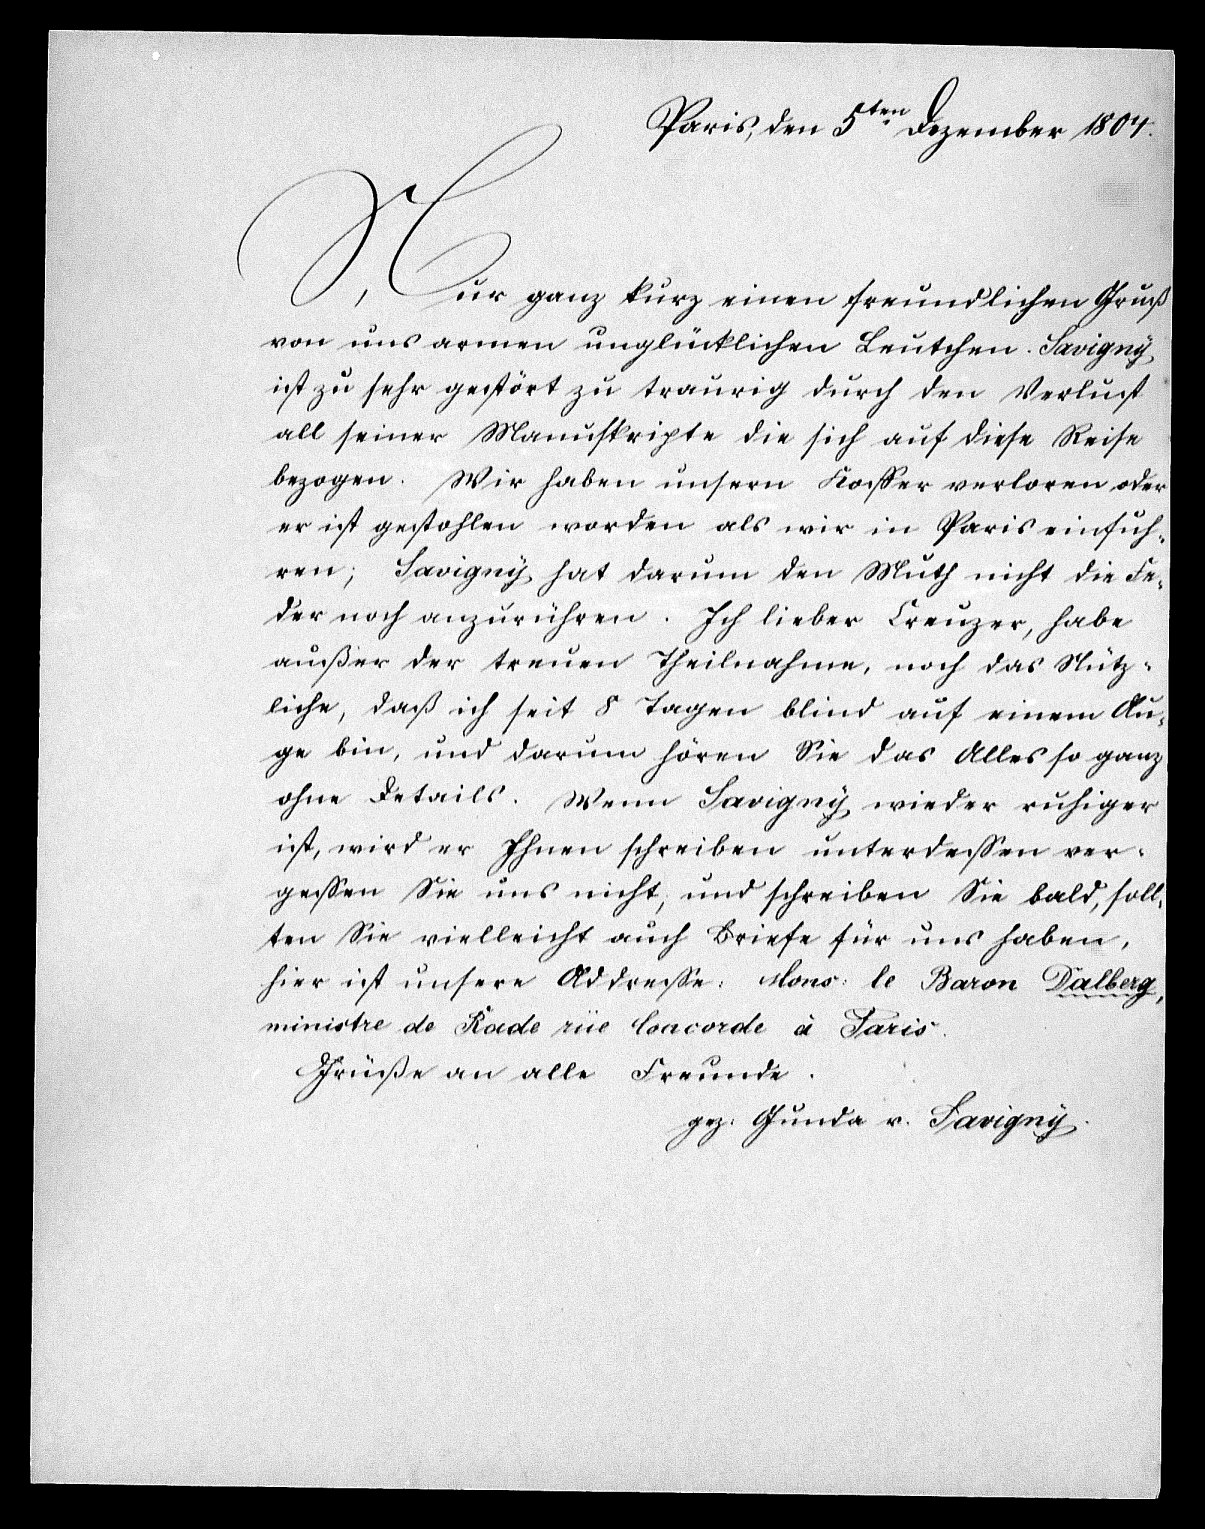 Paris, den 5ten Dezember 1804.
Nur ganz kurz einen freundlichen Gruß
von uns armen unglücklichen Leutchen. Savigny
ist zu sehr gestört zu traurig durch den Verlust
all seiner Manuskripte die sich auf diese Reise
bezogen. Wir haben unsern Koffer verloren oder
er ist gestohlen worden als wir in Paris einfuh-
ren; Savigny hat darum den Muth nicht die Fe-
der noch anzurühren. Ich lieber Creuzer, habe
außer der treuen Theilnahme, noch das Nütz-
liche, daß ich seit 8 Tagen blind auf einem Au-
ge bin, und darum hören Sie das Alles so ganz
ohne Details. Wenn Savigny wieder ruhiger
ist, wird er Ihnen schreiben unterdessen ver-
gessen Sie uns nicht, und schreiben Sie bald, soll-
ten Sie vielleicht auch Briefe für uns haben,
hier ist unsere Addresse: Mons: le Baron Dalberg,
ministre de Bade rüe Concorde à Paris.
Grüße an alle Freunde.
gez. Gunda v. Savigny.